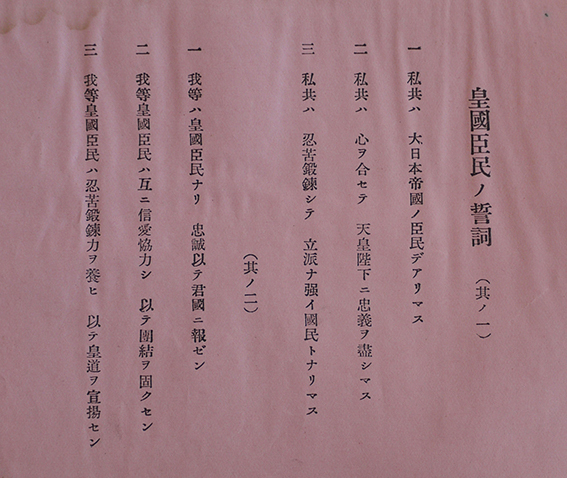 皇國臣民ノ誓詞 （其ノ一）
一 私共ハ 大日本帝國ノ臣民デアリマス
二 私共ハ 心ヲ合セテ 天皇陛下ニ忠義ヲ盡シマス
三 私共ハ 忍苦鍛鍊シテ 立派ナ强イ國民トナリマス
（其ノ二）
一 我等ハ皇國臣民ナリ 忠誠以テ君國ニ報ゼン
二 我等皇國臣民ハ互ニ信愛協力シ 以テ團結ヲ固クセン
三 我等皇國臣民ハ忍苦鍛鍊力ヲ養ヒ 以テ皇道ヲ宣揚セン